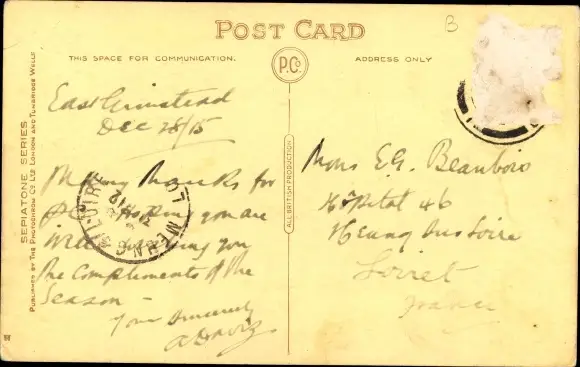 POST CARD
B
THIS SPACE FOR COMMUNICATION.
P.Co
ADDRESS ONLY
East Grinstead
Dec 28/15
Many thanks for
P.C. Hoping you are
well wishing you
the compliments of the
Season -
Yours Sincerely
Mons E.G.
Hôpital 46
Meung sus Loire
Loiret
France
ALL BRITISH PRODUCTION
SEPIATONE SERIES
PUBLISHED BY THE PHOTOCHROM CO. LTD. LONDON AND TUNBRIDGE WELLS